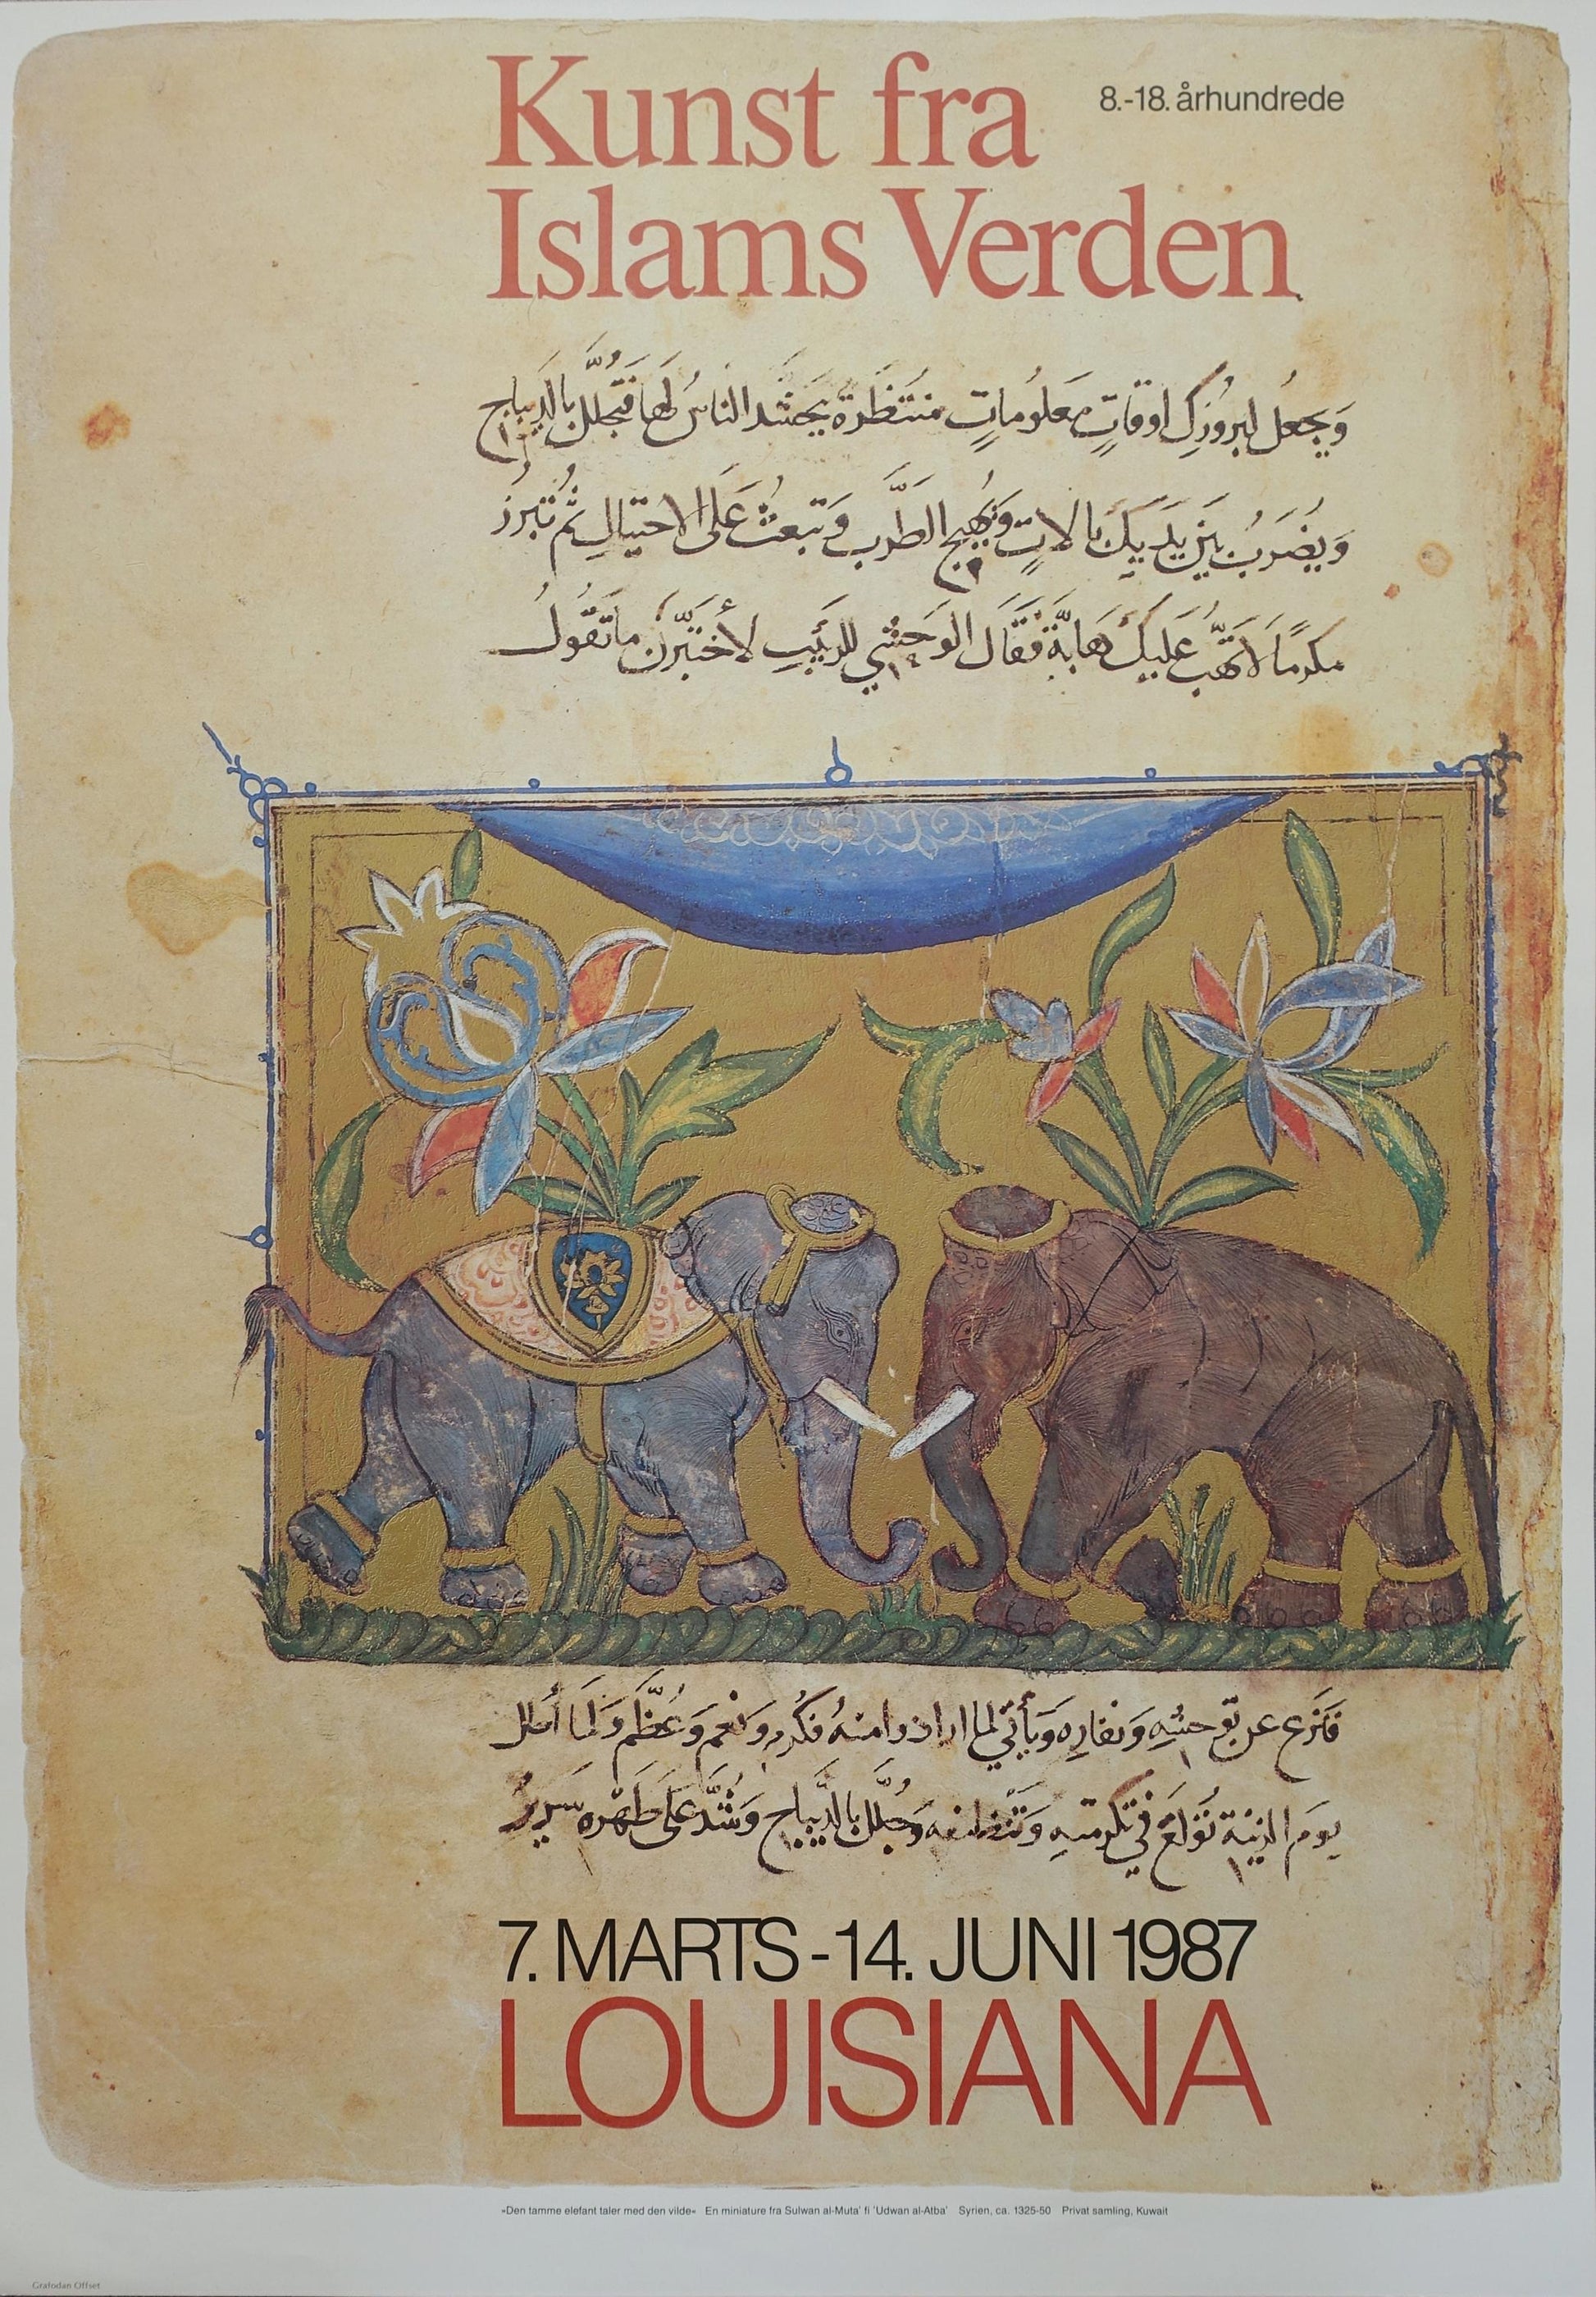 Kunst fra
8.-18. århundrede
Islams Verden
وَيجعُل لبروُزِك اوقاتٍ مَعلوُماتٍ منتَظَرة يَحشُد الناسُ لَها فتُجلَّل بالدِيباج
وَيُضرَبُ بَين يَدَيكَ بالاتٍ وَتُهيج الطَّرب وَتبعثُ عَلى الاحتيالِ ثم تُبرَز
مكرمًا لا تَهبُّ عَليكَ هَابَّة فقَال الوَحشي للربَيبِ لأختَبَرنَّ ما تَقوُل
فنَزع عن توحشِه وَنفارِه وَيأتي لما ارادوا منهُ فكُرم وَنعم وَعُظّم وَلَما أطل
يومَ الزينة تُولغَ في تكرمتهِ وَتَنظيفه وَجُلَّل بالدِّيباج وَشُدَّ عَلى ظَهره سَرير
7. MARTS - 14. JUNI 1987
LOUISIANA
»Den tamme elefant taler med den vilde« En miniature fra Sulwan al-Muta' fi 'Udwan al-Atba' Syrien, ca. 1325-50 Privat samling, Kuwait
Grafodan Offset